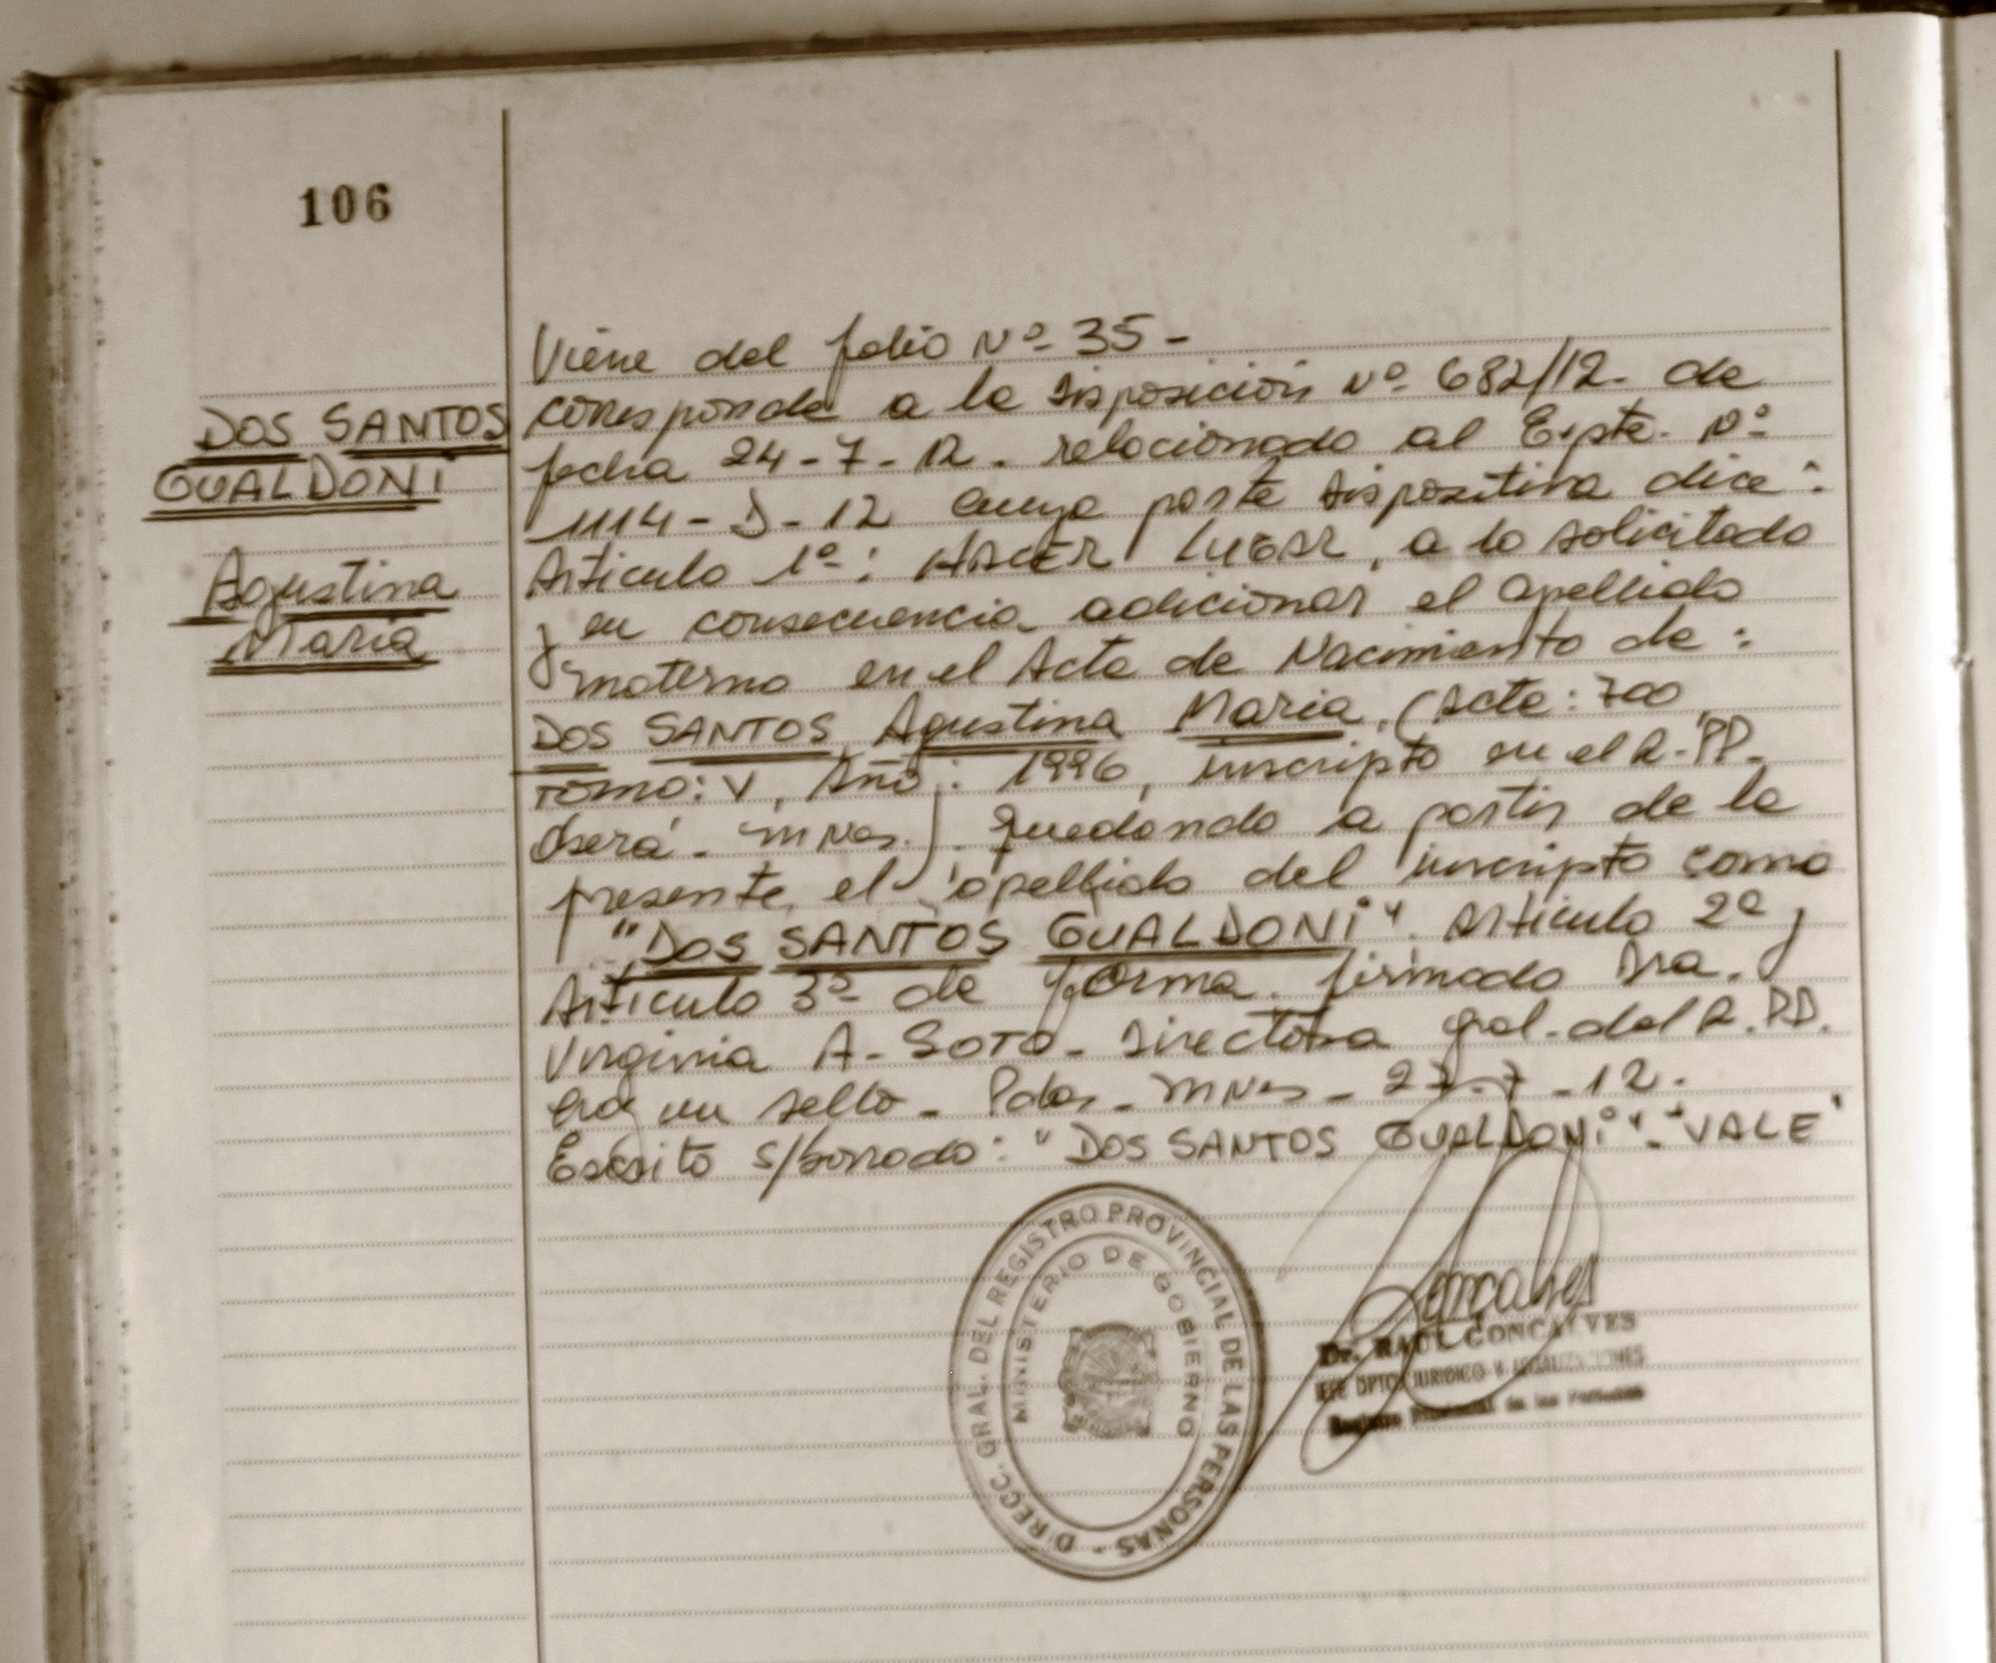 106
DOS SANTOS
GUALDONI
Agustina
Maria
Viene del folio Nº 35 -
corresponde a la disposición Nº 682/12. de
fecha 24-7-12. relacionado al Expte. Nº
1114-D-12 cuya parte dispositiva dice:
Articulo 1º: HACER LUGAR, a lo solicitado
y en consecuencia adicionar el apellido
materno en el Acta de Nacimiento de:
DOS SANTOS Agustina Maria, (Acta: 700,
Tomo: V, Año: 1996, inscripto en el R.PP.
Oberá - Mnes.). quedando a partir de la
presente, el apellido del inscripto como
"DOS SANTOS GUALDONI". Articulo 2º y
Articulo 3º de forma. firmado Dra.
Virginia A. SOTO - Directora gral. del R.PP.
un sello - Pdas - Mnes - 27-7-12.
Escrito s/borrado: "DOS SANTOS GUALDONI". "VALE"
DIRECC. GRAL. DEL REGISTRO PROVINCIAL DE LAS PERSONAS -
MINISTERIO DE GOBIERNO
Goncalves
Dr. RAUL GONCALVES
JEFE DPTO. JURIDICO Y LEGALIZACIONES
Registro Provincial de las Personas